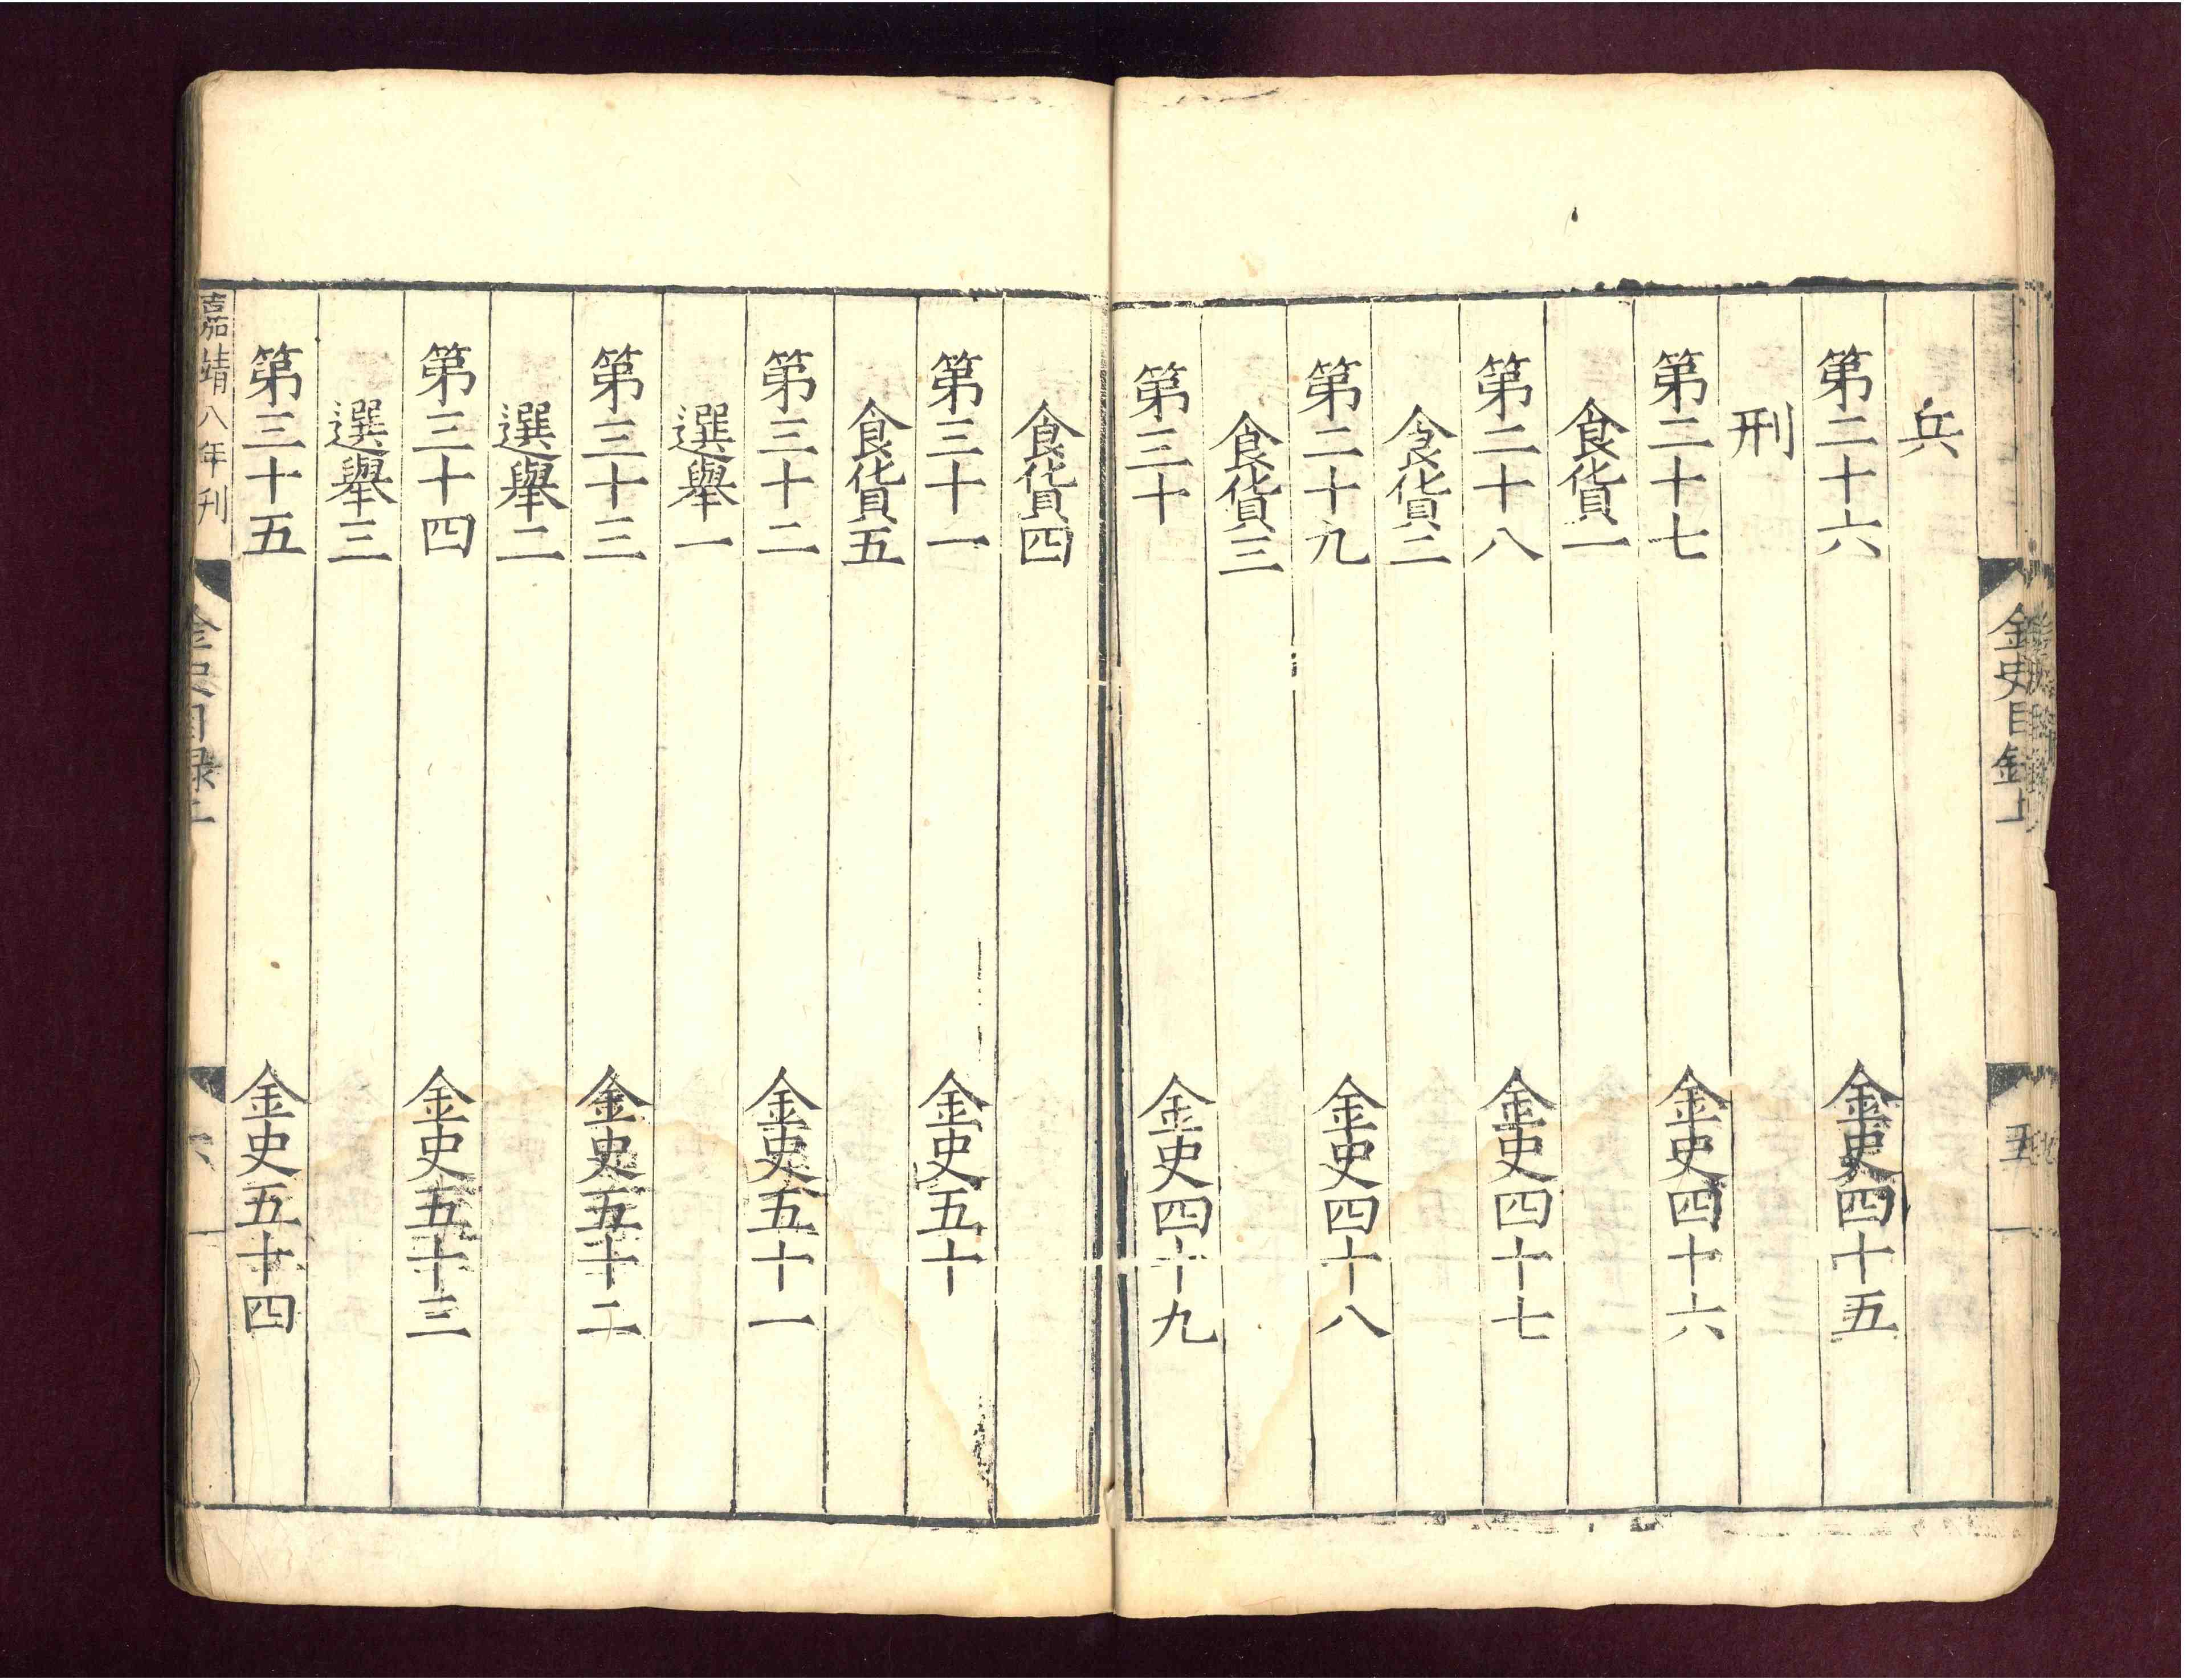 金史目録上
五
兵
第二十六 金史四十五
刑
第二十七 金史四十六
食貨一
第二十八 金史四十七
食貨二
第二十九 金史四十八
食貨三
第三十 金史四十九
食貨四
第三十一 金史五十
食貨五
第三十二 金史五十一
選舉一
第三十三 金史五十二
選舉二
第三十四 金史五十三
選舉三
第三十五 金史五十四
嘉靖八年刊
金史目録上
六